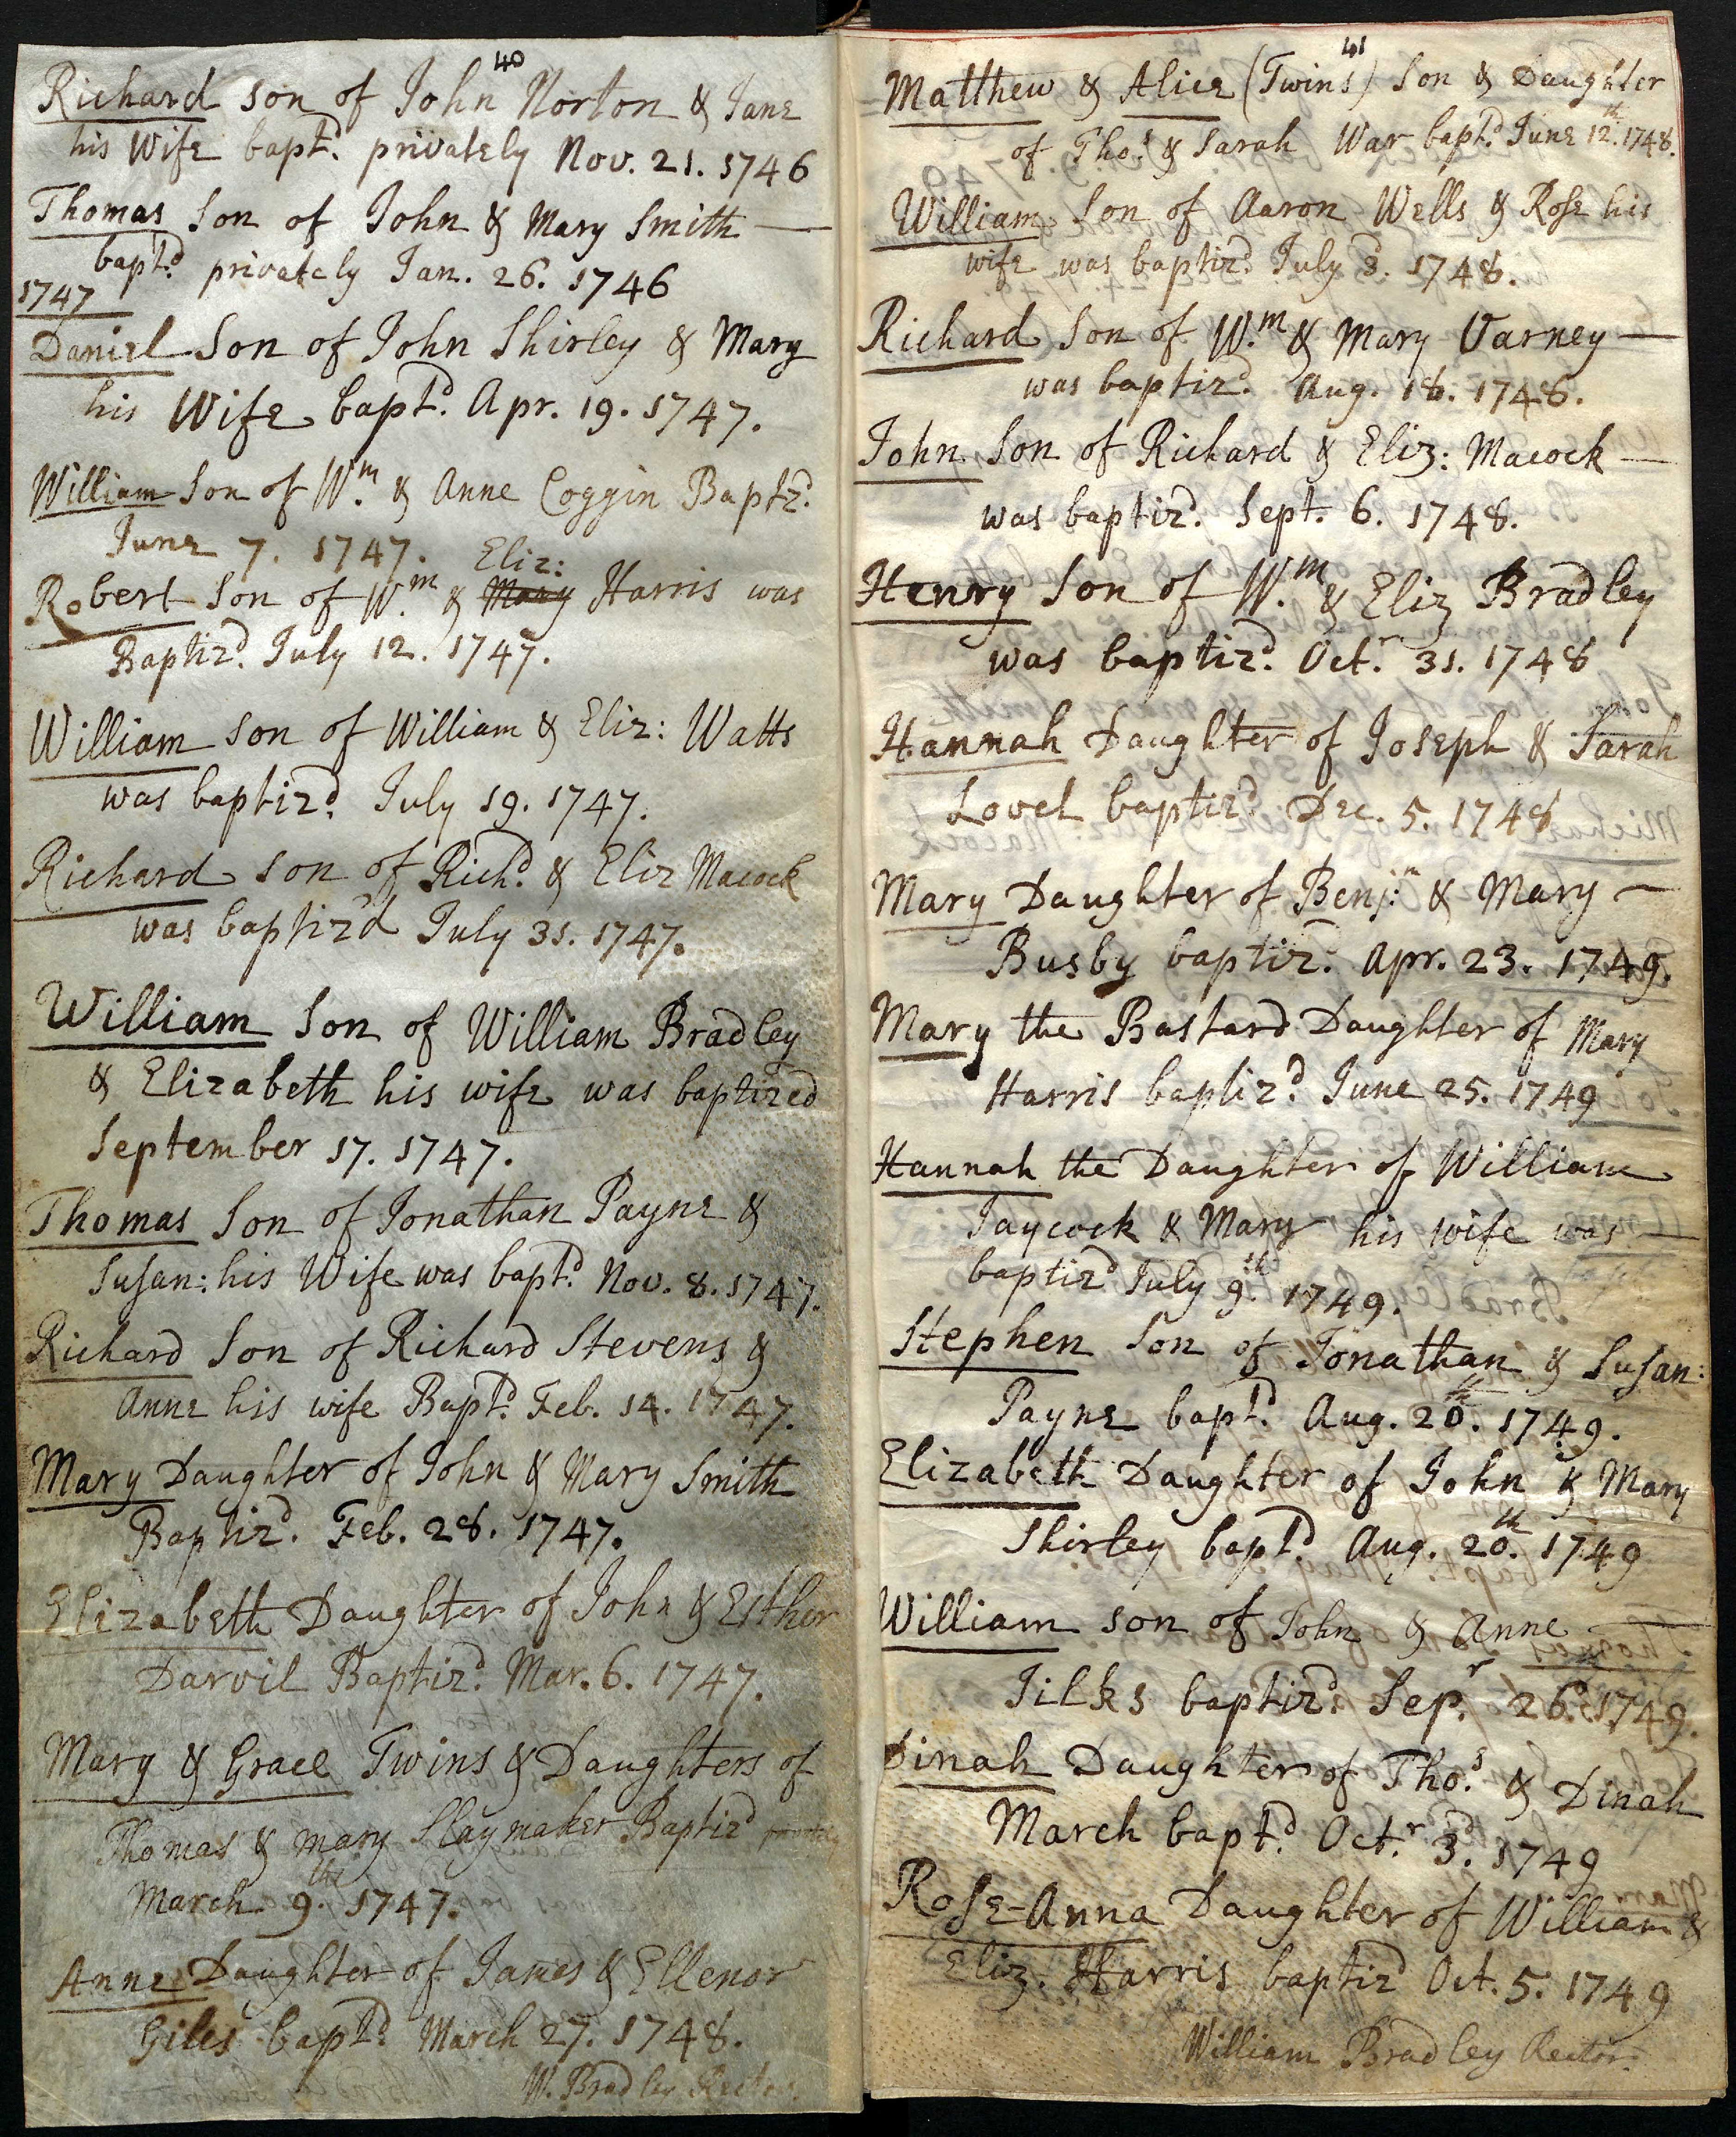 40
Richard son of John Norton & Jane
his Wife bapt.d privately Nov. 21. 1746
Thomas Son of John & Mary Smith —
bapt.d privately Jan. 26. 1746
1747
Daniel Son of John Shirley & Mary
his Wife bapt.d Apr. 19. 1747.
William Son of W.m & Anne Coggin Baptz.d
June 7. 1747.
Eliz:
Robert Son of W.m & Mary Harris was
Baptiz.d July 12. 1747.
William son of William & Eliz: Watts
was baptiz.d July 19. 1747.
Richard son of Rich.d & Eliz Macock
was baptiz'd July 31. 1747.
William Son of William Bradley
& Elizabeth his wife was baptized
September 17. 1747.
Thomas Son of Jonathan Payne &
Susan: his Wife was bapt.d Nov. 8. 1747.
Richard Son of Richard Stevens &
Anne his wife Bapt.d Feb. 14. 1747.
Mary Daughter of John & Mary Smith
Baptiz.d Feb. 28. 1747.
Elizabeth Daughter of John & Esther
Darvil Baptiz.d Mar. 6. 1747.
Mary & Grace Twins & Daughters of
Thomas & Mary Slaymaker Baptiz.d
March 9.th 1747.
Anne Daughter of James & Ellenor
Giles bapt.d March 27. 1748.
W. Bradley Rector.
41
Matthew & Alice (Twins) Son & Daughter
of Tho.s & Sarah War bapt.d June 12.th 1748.
William Son of Aaron Wells & Rose his
wife was baptiz.d July 3. 1748.
Richard Son of W.m & Mary Varney —
was baptiz.d Aug. 18. 1748.
John Son of Richard & Eliz: Macock —
was baptiz.d Sept. 6. 1748.
Henry Son of W.m & Eliz Bradley
was baptiz.d Oct.r 31. 1748
Hannah Daughter of Joseph & Sarah
Lovel baptiz.d Dec. 5. 1748
Mary Daughter of Benj:n & Mary —
Busby baptiz.d Apr. 23. 1749.
Mary the Bastard Daughter of Mary
Harris baptiz.d June 25. 1749
Hannah the Daughter of William
Jaycock & Mary his wife was —
baptiz.d July 9.th 1749.
Stephen Son of Jonathan & Susan:
Payne bapt.d Aug. 20.th 1749.
Elizabeth Daughter of John & Mary
Shirley bapt.d Aug. 20.th 1749
William son of John & Anne —
Jilks baptiz.d Sep.r 26. 1749.
Dinah Daughter of Tho.s & Dinah
March bapt.d Oct.r 3.d 1749
Rose-Anna Daughter of William &
Eliz. Harris baptiz.d Oct. 5. 1749
William Bradley Rector.